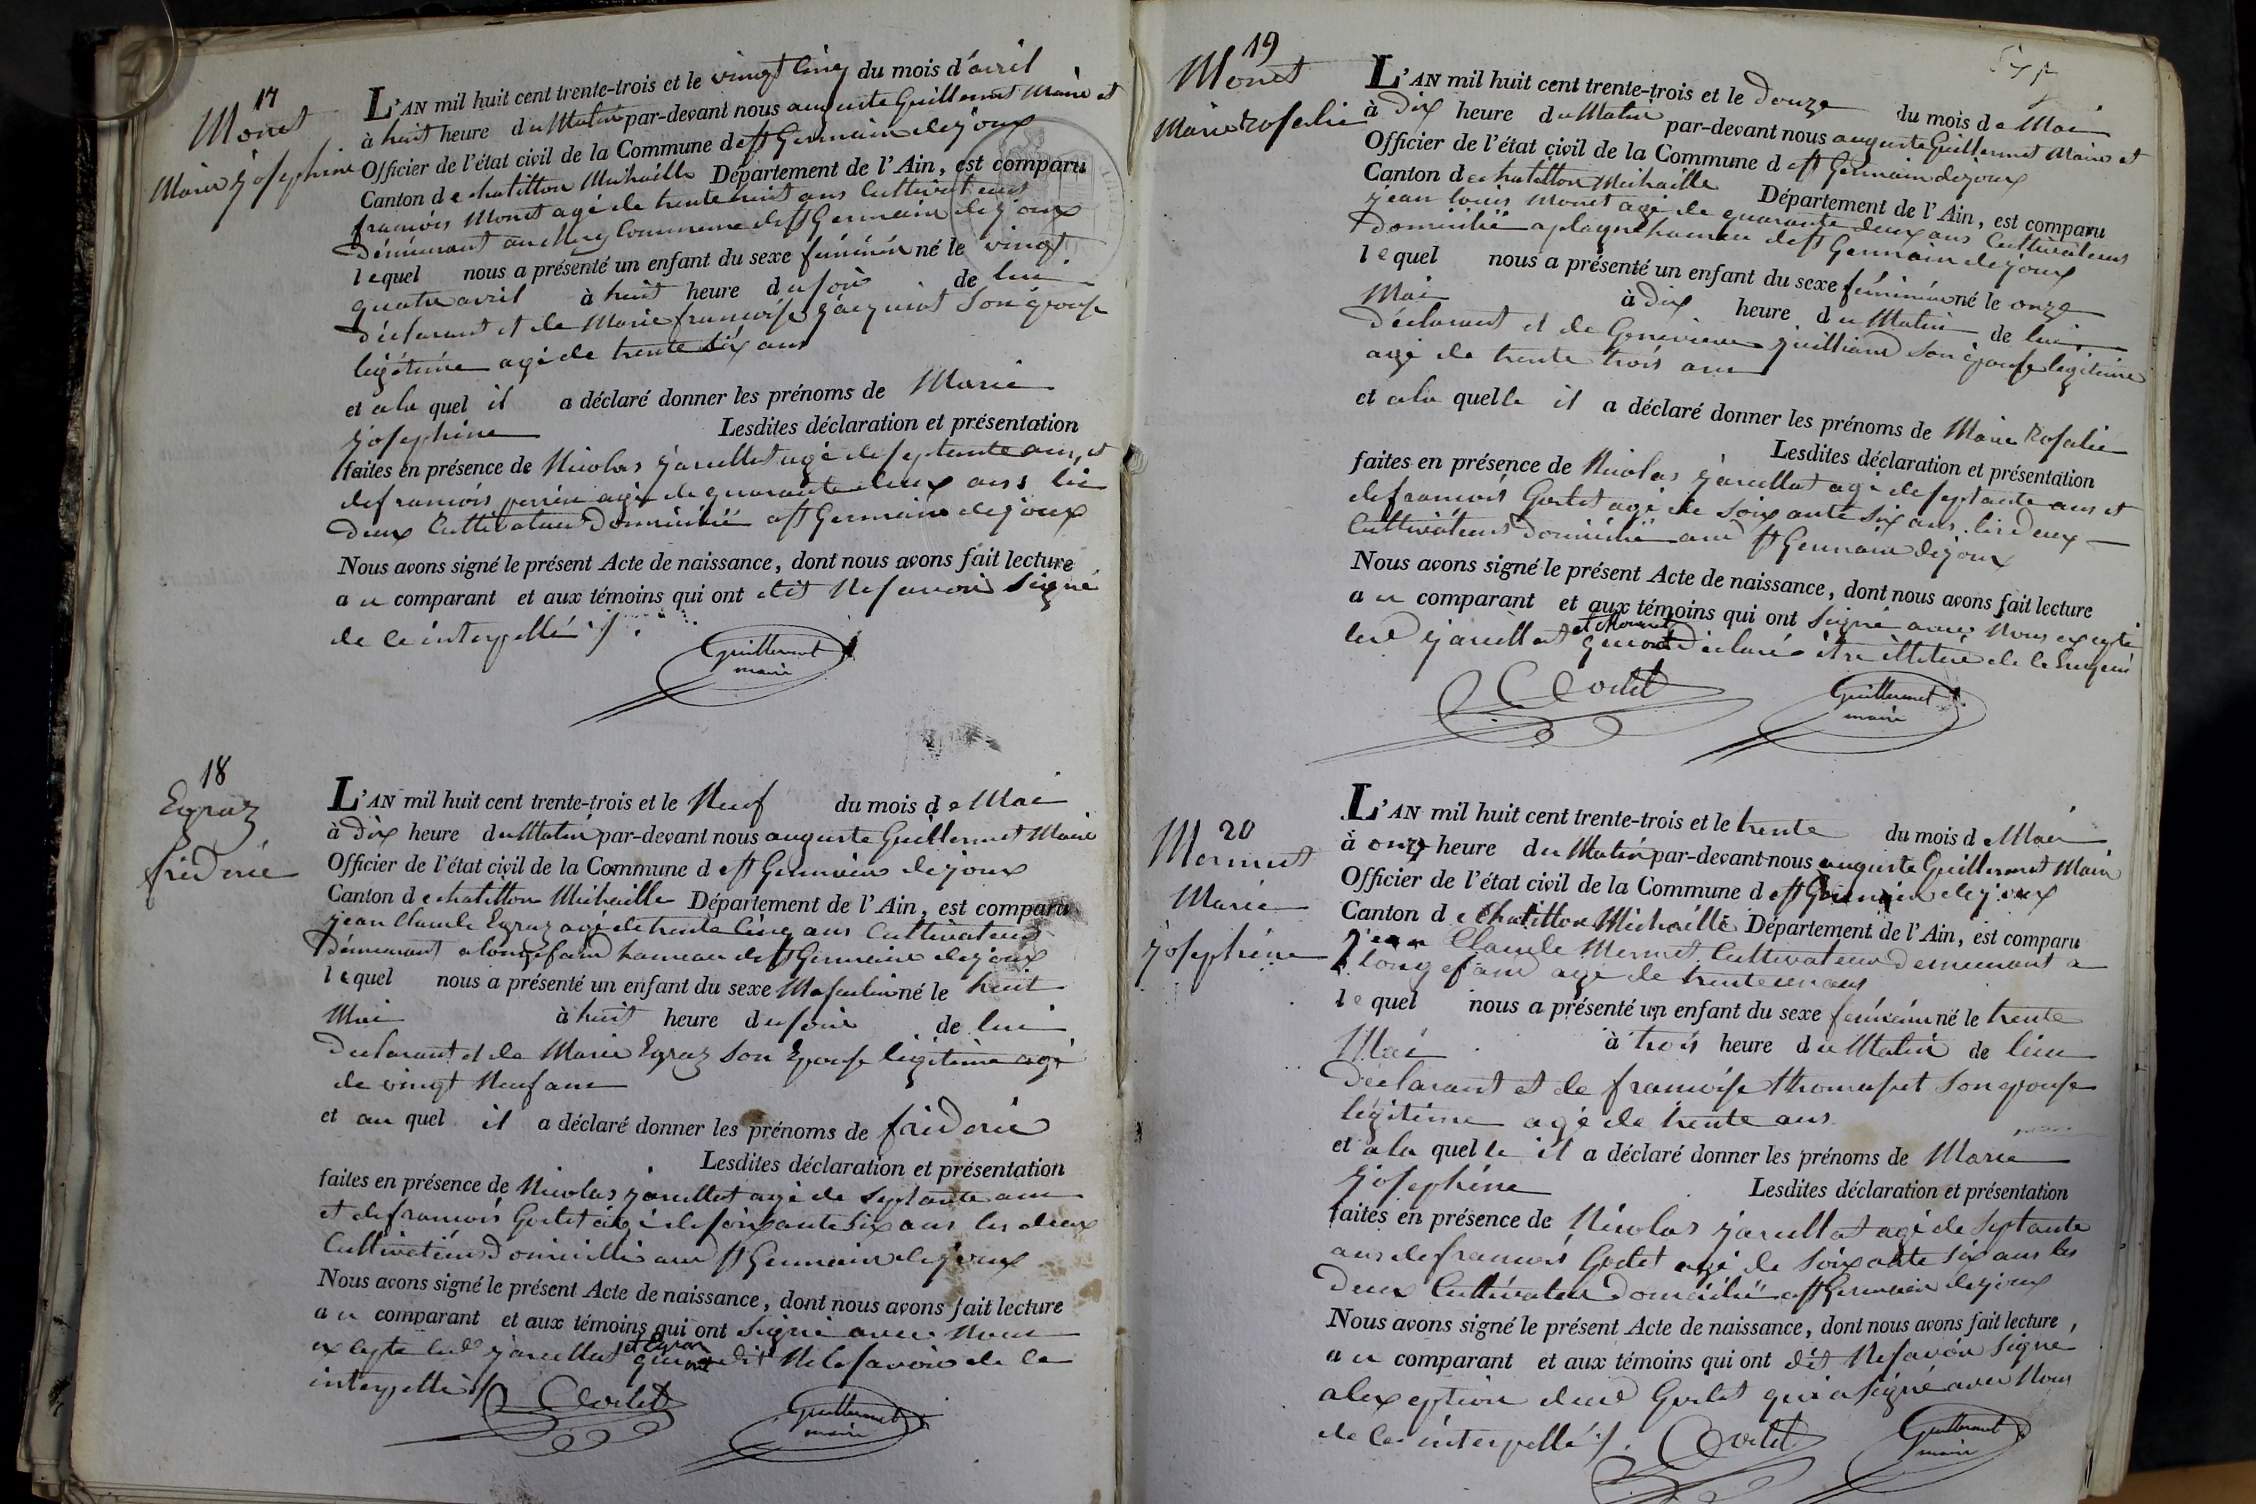 17
Monet
Marie josephine
L'AN mil huit cent trente-trois et le vingt cinq du mois d'avril
à huit heure du Matin par-devant nous auguste Guillermet Maire et
Officier de l'état civil de la Commune de st Germain de joux
Canton de chatillon Michaille Département de l'Ain, est comparu
francois Monet agé de trente huit ans Cultivateur
Demeurant au Commune de st Germain de joux
lequel nous a présenté un enfant du sexe féminin né le vingt
quatre avril à huit heure du soir de lui
déclarant et de Marie francoise jacquiot son épouse
légitime agé de trente six ans
et a la quel il a déclaré donner les prénoms de Marie
josephine Lesdites déclaration et présentation
faites en présence de Nicolas jarcellat agé de septante ans, et
de francois perrin agé de quarante deux ans les
deux Cultivateur Domicilié a st Germain de joux
Nous avons signé le présent Acte de naissance, dont nous avons fait lecture
au comparant et aux témoins qui ont dit Ne savoir Signé
de ce interpellé ./.
Guillermet
maire
18
Egraz
frideric
L'AN mil huit cent trente-trois et le Neuf du mois de Mai
à dix heure du Matin par-devant nous auguste Guillermet Maire
Officier de l'état civil de la Commune de st Germain de joux
Canton de chatillon Michaille Département de l'Ain, est comparu
jean Claude Egraz agé de trente Cinq ans Cultivateur
Demeurant a longefand hameau de st Germain de joux
lequel nous a présenté un enfant du sexe Masculin né le huit
Mai à huit heure du soir de lui
Déclarant et de Marie Egraz son Epouse légitime agé
de vingt Neuf ans
et au quel il a déclaré donner les prénoms de frideric
Lesdites déclaration et présentation
faites en présence de Nicolas jarcellat agé de Septante ans
et de francois Godet agé de soixante six ans les deux
Cultivateur Domicillié aud st Germain de joux
Nous avons signé le présent Acte de naissance, dont nous avons fait lecture
au comparant et aux témoins qui ont signé avec Nous
excepte led jarcellat et Egraz qui ont dit Ne le savoir de ce
interpellé ./.
Godet
Guillermet
maire
19
Monet
Marie Rosalie
L'AN mil huit cent trente-trois et le douze du mois de Mai
à Dix heure du Matin par-devant nous auguste Guillermet Maire et
Officier de l'état civil de la Commune de st Germain de joux
Canton de chatillon Michaille Département de l'Ain, est comparu
jean louis Monet agé de quarante deux ans Cultivateur
Domicilié a plagne hameau de st Germain de joux
lequel nous a présenté un enfant du sexe féminin né le onze
Mai à dix heure du Matin de lui
déclarant et de Genevieve juilliand son épouse légitime
agé de trente trois ans
et a la quelle il a déclaré donner les prénoms de Marie Rosalie
Lesdites déclaration et présentation
faites en présence de Nicolas jarcellat agé de septante ans et
de francois Godet agé de soixante six ans les deux
Cultivateur Domicilié aud st Germain de joux
Nous avons signé le présent Acte de naissance, dont nous avons fait lecture
au comparant et aux témoins qui ont signé avec Nous excepté
led jarcellat et Monet qui ont Déclaré être illitéré de ce enquis
Godet
Guillermet
maire
20
Mermet
Marie
josephine
L'AN mil huit cent trente-trois et le trente du mois de Mai
à onze heure du Matin par-devant nous auguste Guillermet Maire
Officier de l'état civil de la Commune de st Germain de joux
Canton de Chatillon Michaille Département de l'Ain, est comparu
jean Claude Mermet Cultivateur Demeurant a
longefand agé de trente un ans
lequel nous a présenté un enfant du sexe féminin né le trente
Mai à trois heure du Matin de lui
Déclarant et de francoise thomasset son epouse
légitime agé de trente ans
et a la quelle il a déclaré donner les prénoms de Marie
josephine Lesdites déclaration et présentation
faites en présence de Nicolas jarcellat agé de Septante
ans de francois Godet agé de soixante six ans les
deux Cultivateur Domicilié a st Germain de joux
Nous avons signé le présent Acte de naissance, dont nous avons fait lecture
au comparant et aux témoins qui ont dit Ne savoir Signé
a lexception dud Godet qui a signé avec Nous
de ce interpellé ./.
Godet
Guillermet
maire